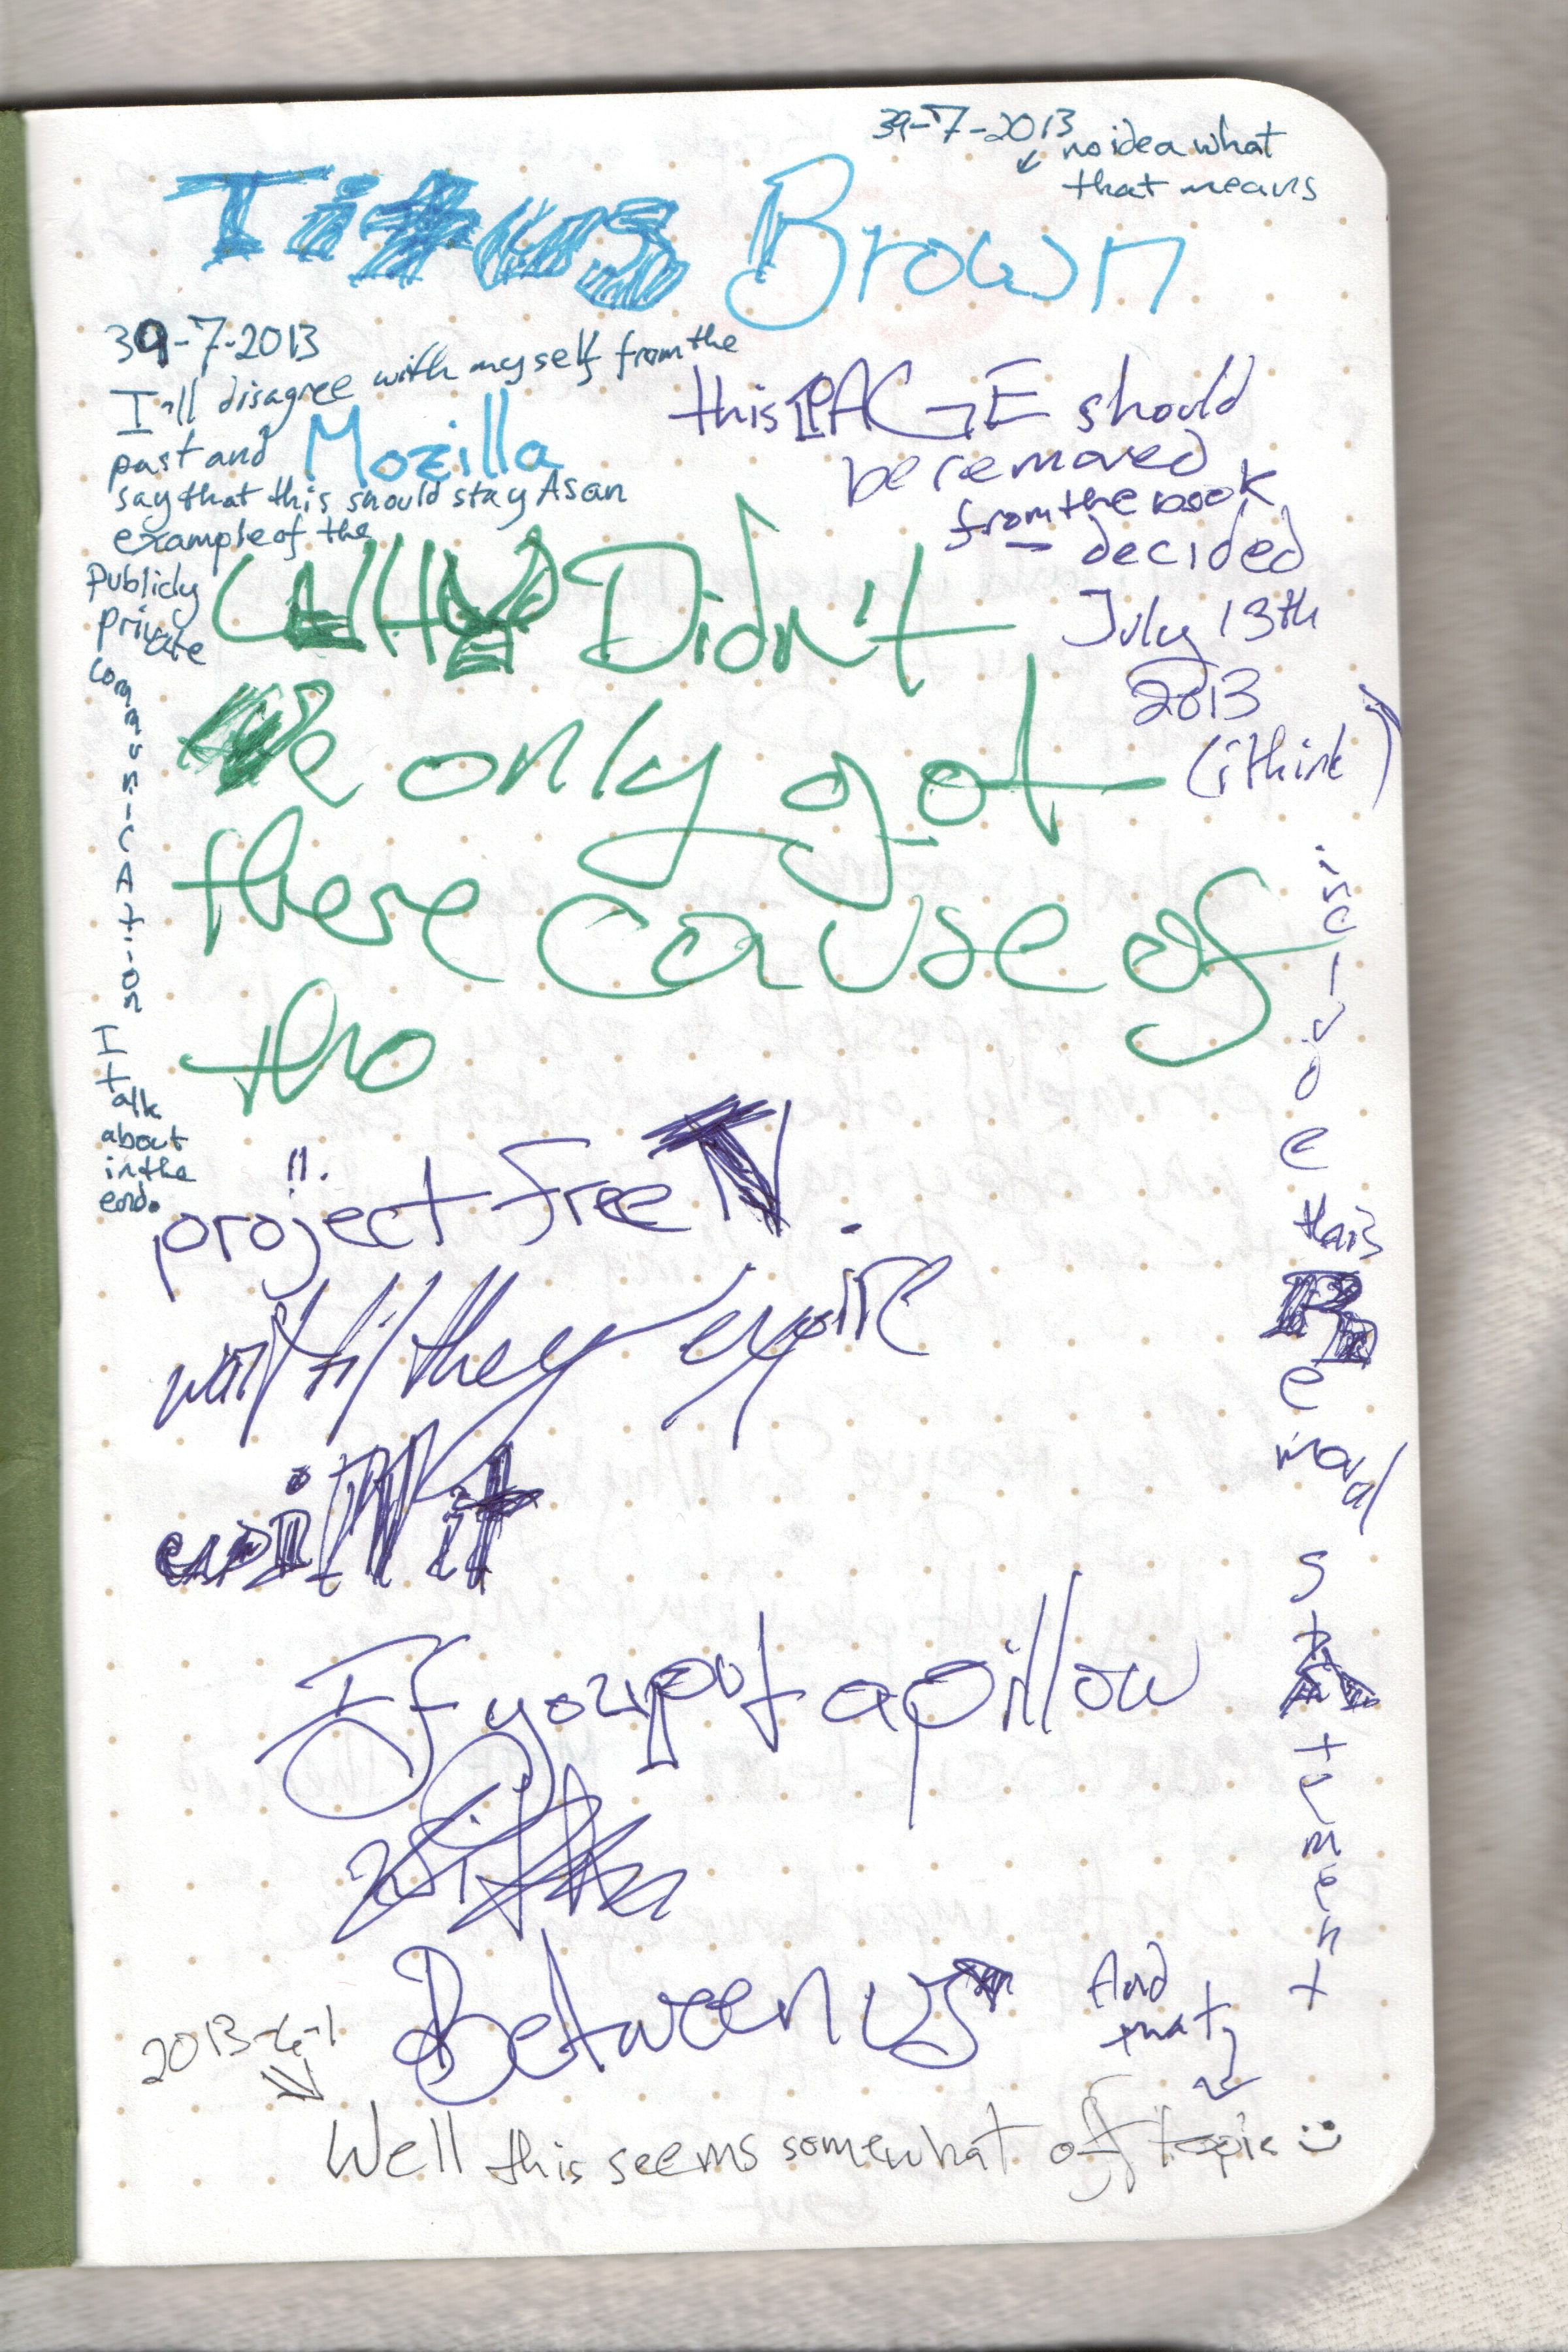 39-7-2013
no idea what
that means
Titus Brown
39-7-2013
I'll disagree with myself from the
past and
say that this should stay As an
example of the
Publicly
private
communicAtion
I talk
about
in the
end.
Mozilla
this PAGE should
be removed
from the book
— decided
July 13th
2013
(i think)
WHY Didn't
only got
there cause of
tho
!!.
project free TV.
wait til they expire
it
If you put a pillow
Between us
inclvde
this
Removal
stAtement
And
that
2013-6-1
Well this seems somewhat off topic :)